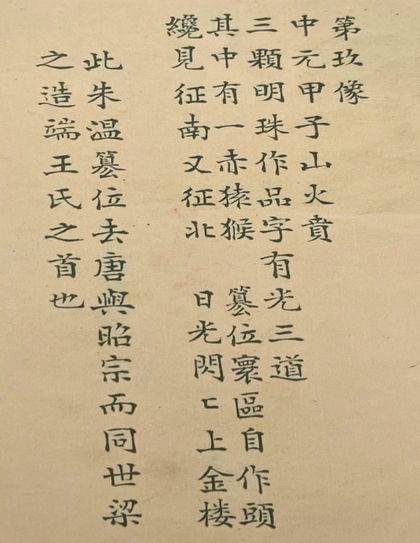 第玖像
中元甲子山火賁
三顆明珠作品字有光三道
其中有一赤猿猴 篡位寰區自作頭
纔見征南又征北 日光閃匕上金楼
此朱温篡位去唐與昭宗而同世梁
之造端王氏之首也